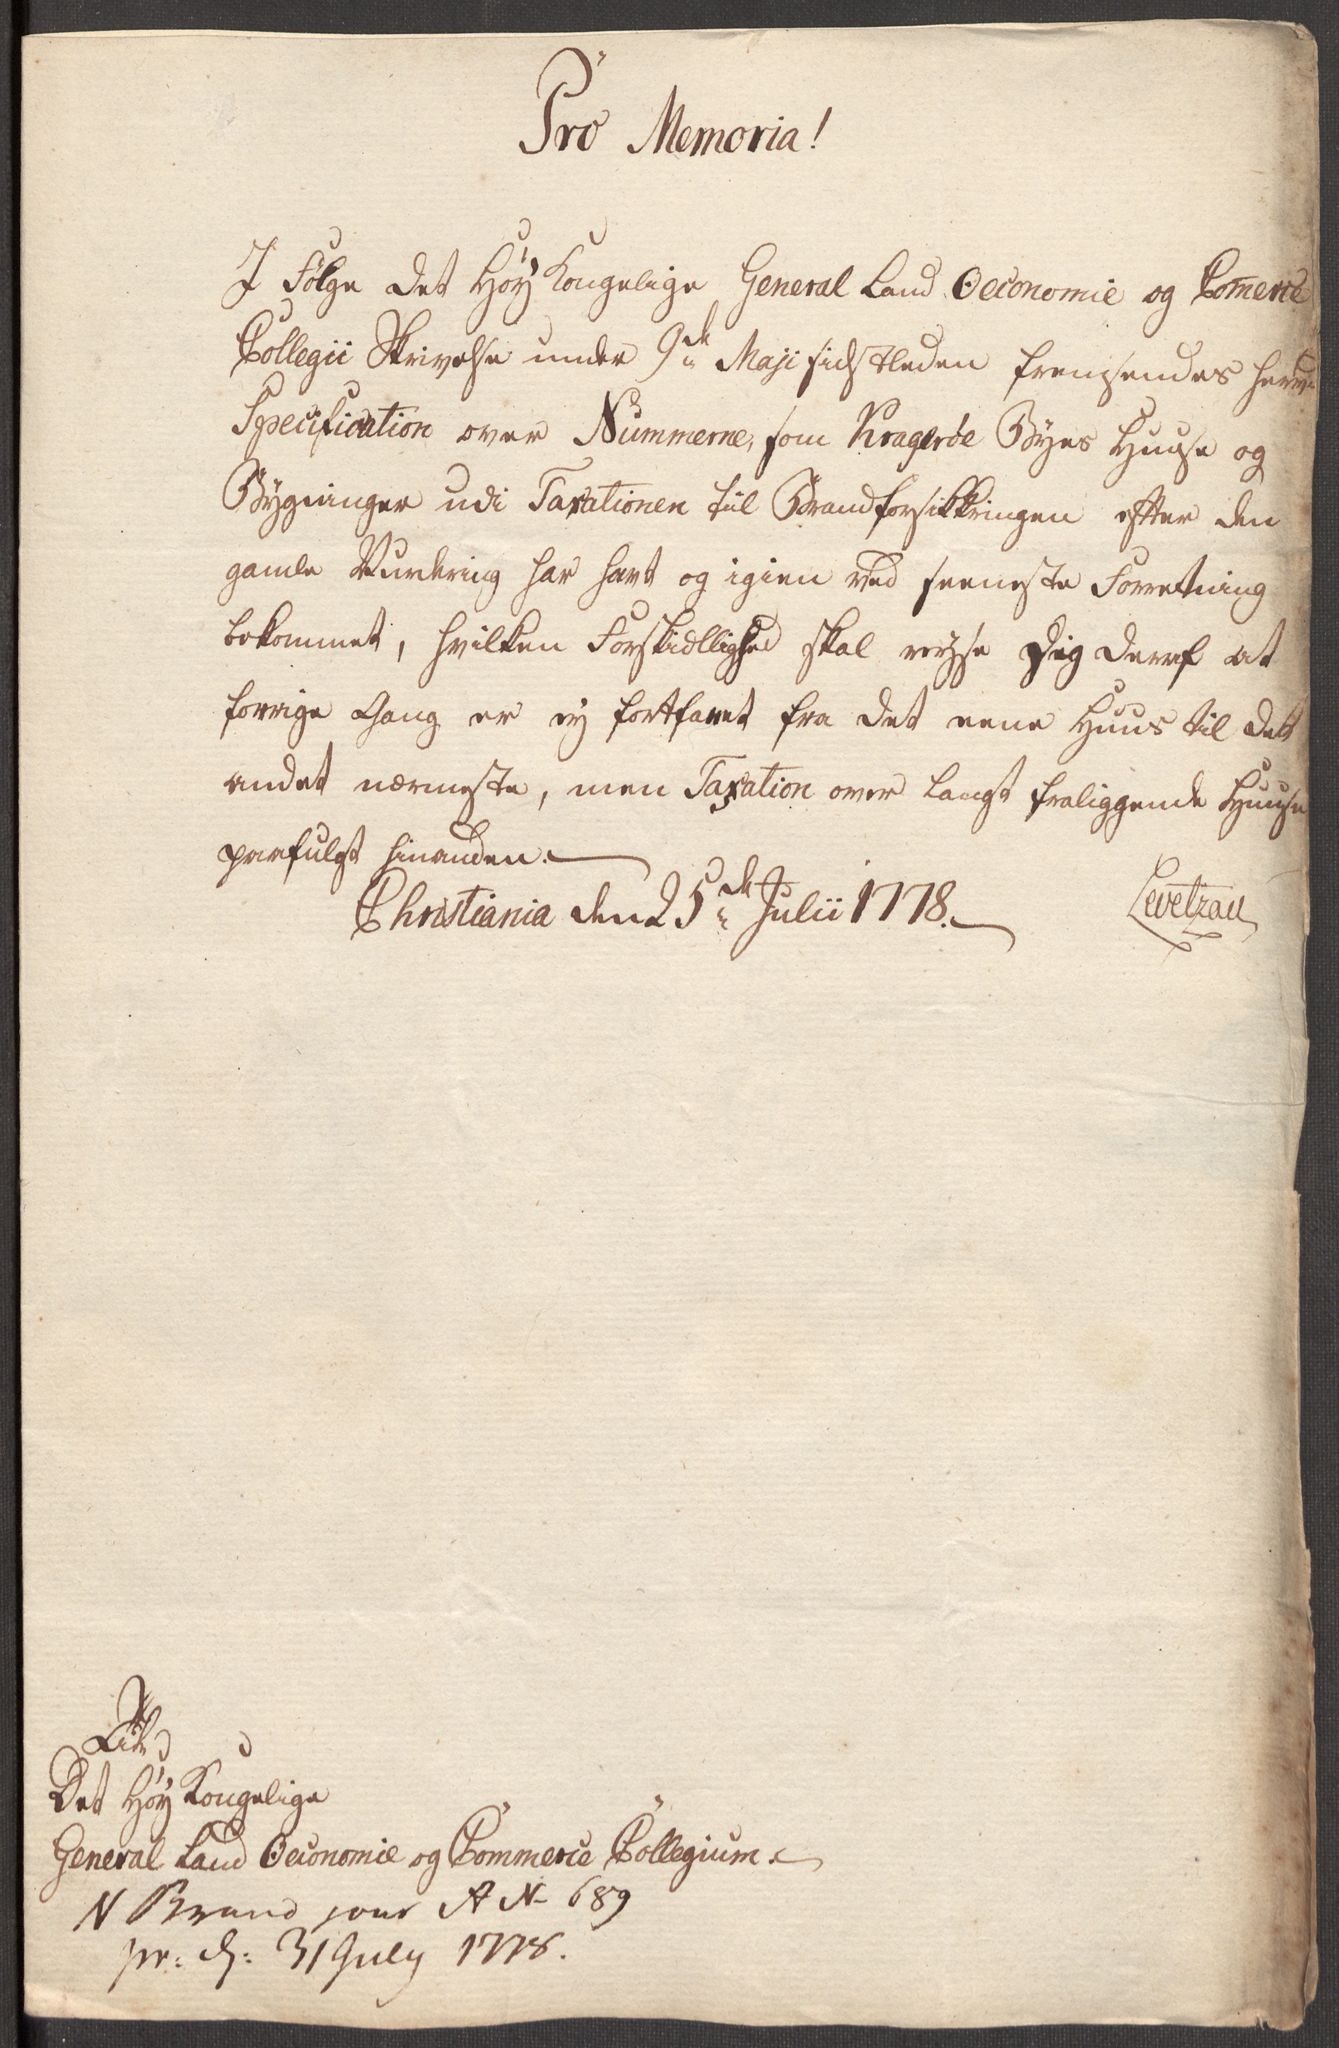 Pro Memoria!
I Følge det Høy Kongelige General Land Oeconomie og Com̅erce
Collegii Skrivelse under 9de Maji sidstleden fremsendes herved
Specification over Nummerne, som Kragerøe Byes Huuse og
Bygninger udi Taxationen til Brandforsikkringen efter den
gamle Vurdering har havt og igien ved seeneste Forretning
bekommet, hvilken Forskiællighed skal reyse sig deraf at
forrige Gang er ey fortfaret fra det eene Huus til det
andet nærmeste, men Taxation over langt fraliggende Huuse
paafulgt hinanden.
Christiania den 25de Julii 1778.
Levetzau
Til
Det Høy Kongelige
General Land Oeconomie og Commerce Collegium.
N Brand jour A No 689
pr: d: 31 July 1778.